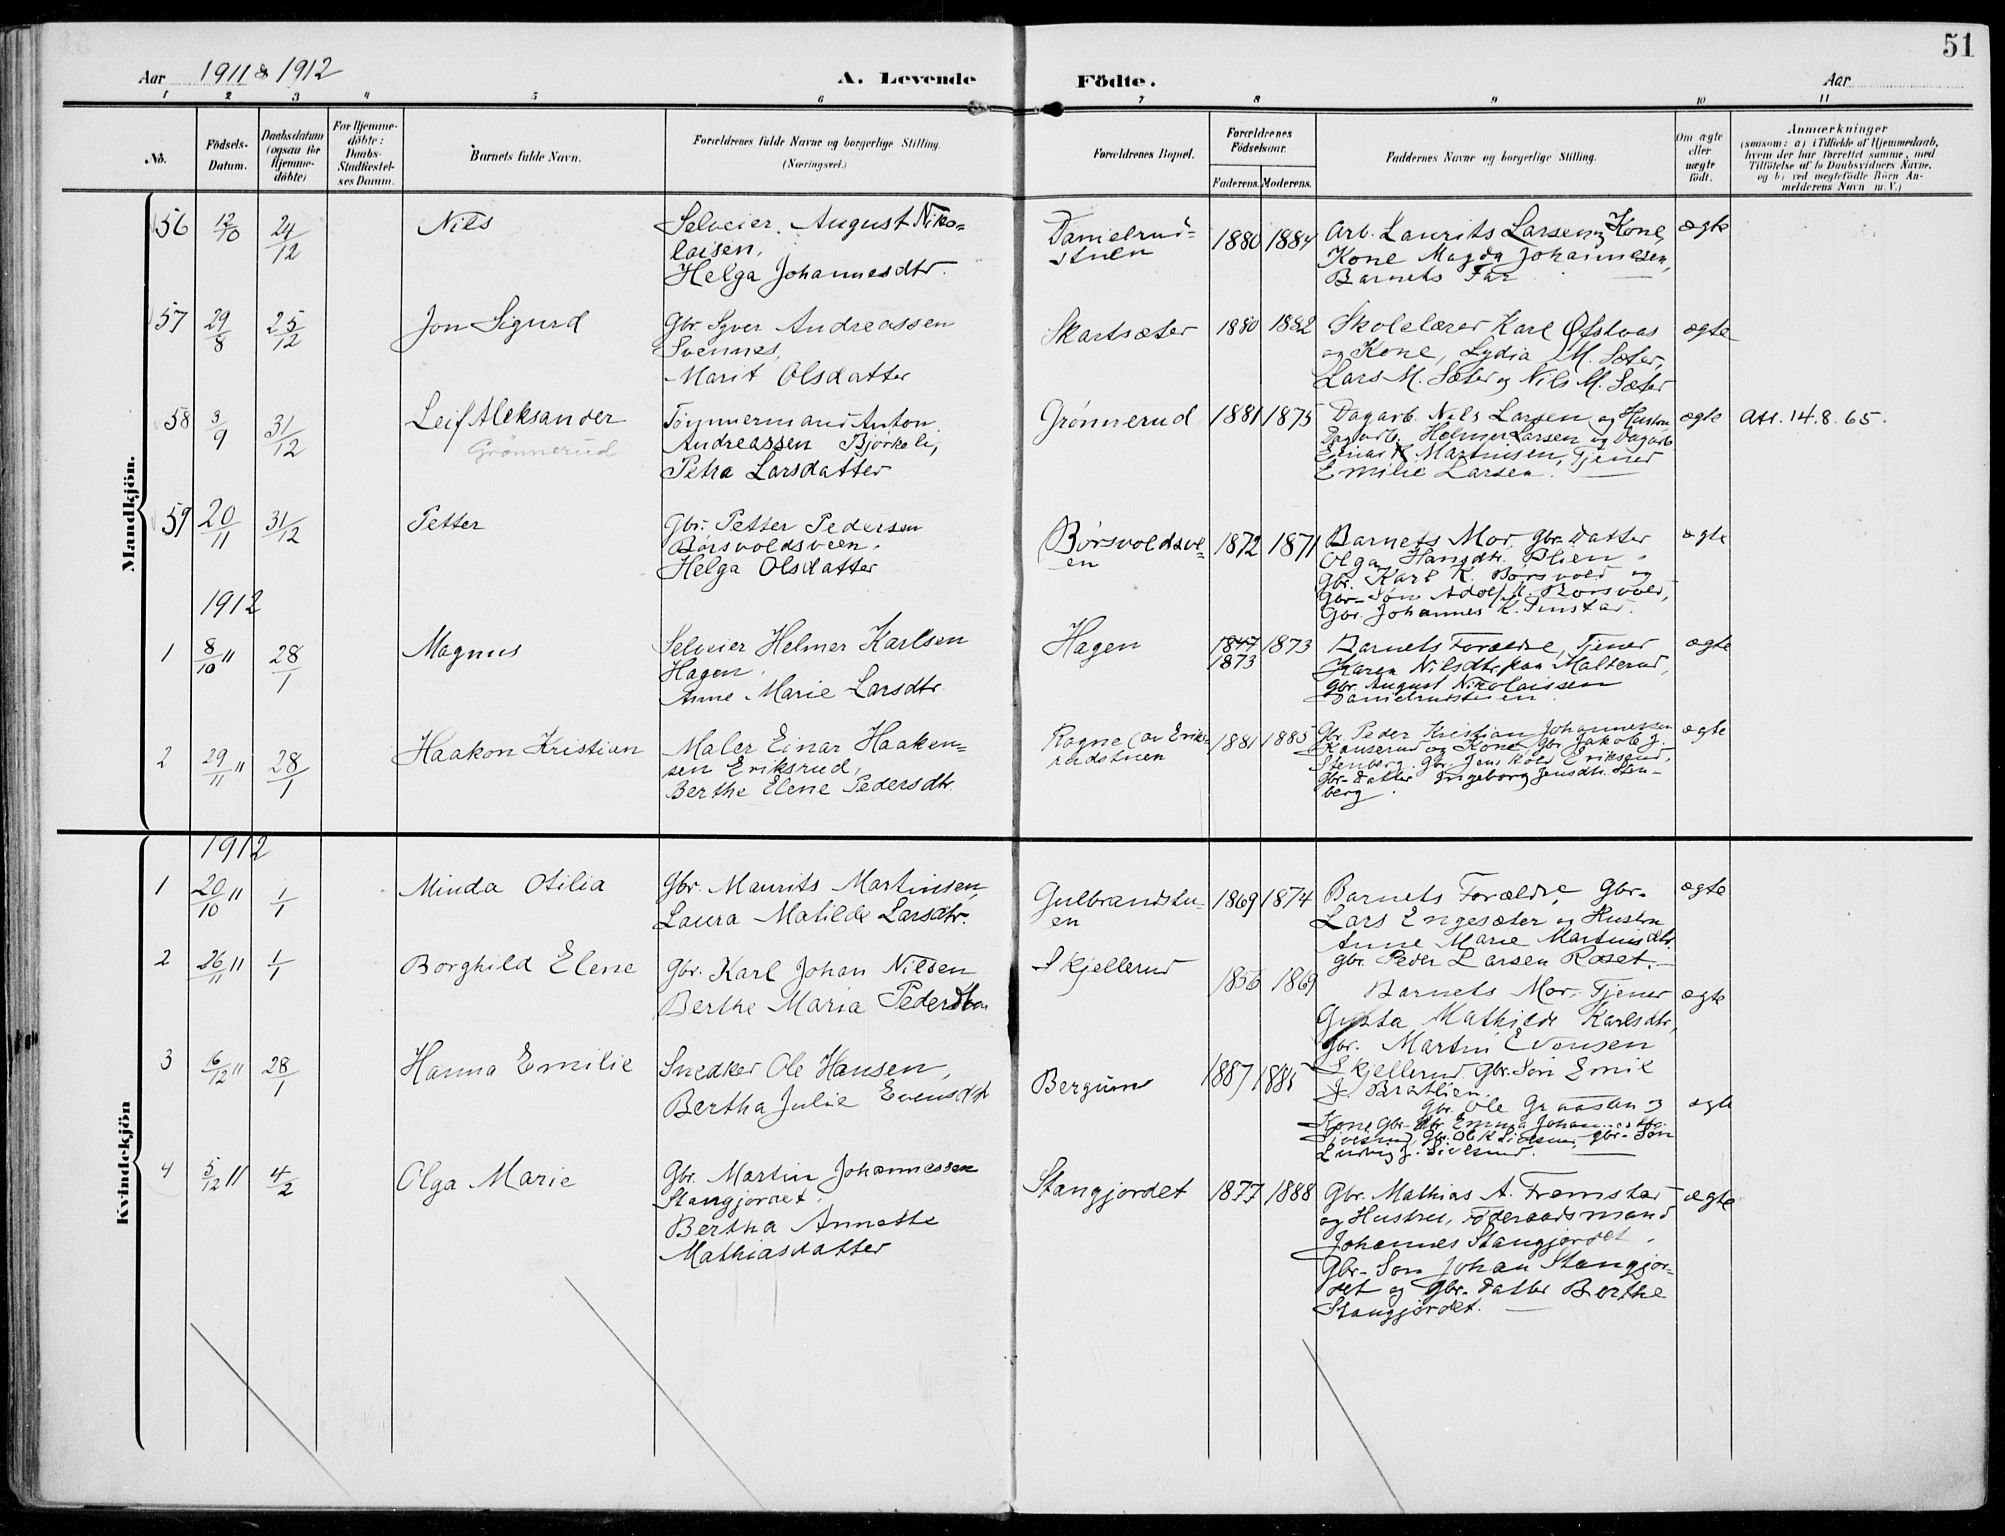 51
Aar 1911 & 1912
A. Levende Födte.
Aar
1 2 3 4 5 6 7 8 9 10 11
No.
Födsels-Datum.
Daabsdatum (ogsaa for Hjemme-döbte)
For Hjemme-döbte: Daabs-Stadfæstel-ses Datum.
Barnets fulde Navn.
Forældrenes fulde Navne og borgerlige Stilling. (Næringsvei.)
Forældrenes Bopæl.
Forældrenes Födselsaar.
Faderens. Moderens.
Faddernes Navne og borgerlige Stilling.
Om ægte eller uægte födt.
Anmærkninger
(saasom: a) i Tilfælde af Hjemmedaab,
hvem der har forrettet samme, med
Tilföielse af to Daabsvidners Navne.
og b) ved uægtefödte Börn An-
melderens Navn m. V.)
Mandkjön.
56 12/10 24/12 Nils
Selveier August Niko-
laisen,
Helga Johannesdtr.
Danielrud-
stuen
1880 1884
Arb. Laurits Larsen og Kone,
Kone Magda Johannesen,
Barnets Far
ægte
57 29/8 25/12 Jon Sigurd
Gbr. Syver Andreassen
Svennes,
Marit Olsdatter
Skartsæter
1880 1882
Skolelærer Karl Ofstvas
og Kone, Lydia M. Sæter,
Lars M. Sæter og Nils M. Sæter
ægte
58 3/9 31/12 Leif Aleksander
Grønnerud
Tømmermand Anton
Andreassen Bjørkeli,
Petra Larsdatter
Grønnerud
1881 1875
Dagarb. Nils Larsen og Hustru
Dagarb. Helmer Larsen og Dagarb.
Einar K. Martinsen, Tjener
Emilie Larsen.
ægte
Att. 14.8.65.
59 20/11 31/12 Petter
Gbr. Petter Pedersen
Børsvoldsveen.
Helga Olsdatter
Børsvoldsve-
en
1872 1871
Barnets Mor, Gbr. Datter
Olga Hansdtr. Blien,
Gbr. Karl K. Børsvold og
Gbr-Søn Adolf K. Børsvold,
Gbr. Johannes K. Finstad.
ægte
1912
1 8/10 11 28/1 Magnus
Selveier Helmer Karlsen
Hagen,
Anne Marie Larsdtr.
Hagen
1847 1873
1873
Barnets Forældre, Tjener
Karen Nilsdtr. paa Malterud,
Gbr. August Nikolaissen
Danielrudstuen.
ægte
2 29/11 11 28/1 Haakon Kristian
Maler Einar Haaken-
sen Eriksrud,
Berthe Elene Pedersdtr.
Rogne (av Eriks-
rudstuen
1881 1885
Gbr. Peder Kristian Johannessen
Kanserud og Kone, Gbr. Jakob J.
Stenberg, Gbr. Jens Kold Eriksrud,
Gbr-Datter Ingeborg Jensdtr. Sten-
berg.
ægte
Kvindekjön
1912
1 20/10 11 1/1 Minda Otilia
Gbr. Maurits Martinsen,
Laura Matilde Larsdtr.
Gulbrandstu-
en
1869 1874
Barnets Forældre, Gbr.
Lars Engesæter og Hustru
Anne Marie Martinsdtr.
Gbr. Peder Larsen Roset.
ægte
2 26/11 11 1/1 Borghild Elene
Gbr. Karl Johan Nilsen
Berthe Maria Pedersdtr.
Skjellerud
1856 1869
Barnets Mor, Tjener
Gusta Mathilde Karlsdtr,
Gbr. Martin Evensen
Skjellerud, Gbr. Søn Emil
J. Bratlien.
ægte
3 16/12 11 28/1 Hanna Emilie
Snedker Ole Hansen,
Bertha Julie Evensdtr
Bergum
1887 1885
Gbr. Ole Graaslan og
Kone, Gbr-Dtr Emma Johannesdtr.
Sivesind, Gbr. Ole K. Sivesind, Gbr-Søn
Ludvig J. Sivesind.
ægte
4 5/12 11 4/2 Olga Marie
Gbr. Martin Johannessen
Stangjordet,
Bertha Annette
Mathiasdatter
Stangjordet
1877 1888
Gbr. Mathias A. Fremstad
og Hustru, Føderaadsmand
Johannes Stangjordet,
Gbr-Søn Johan Stangjor-
det og Gbr-Datter Berthe
Stangjordet.
ægte